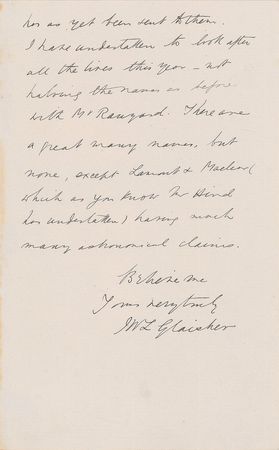 has as yet been sent to them.
I have undertaken to look after
all the lives this year - not
halving the names as before
with Mr Ranyard. There are
a great many names, but
none, except Lamont & Maclear (
which as you know Mr Hind
has undertaken) having much
many astronomical claims.
Believe me
Yours very truly
JWL Glaisher